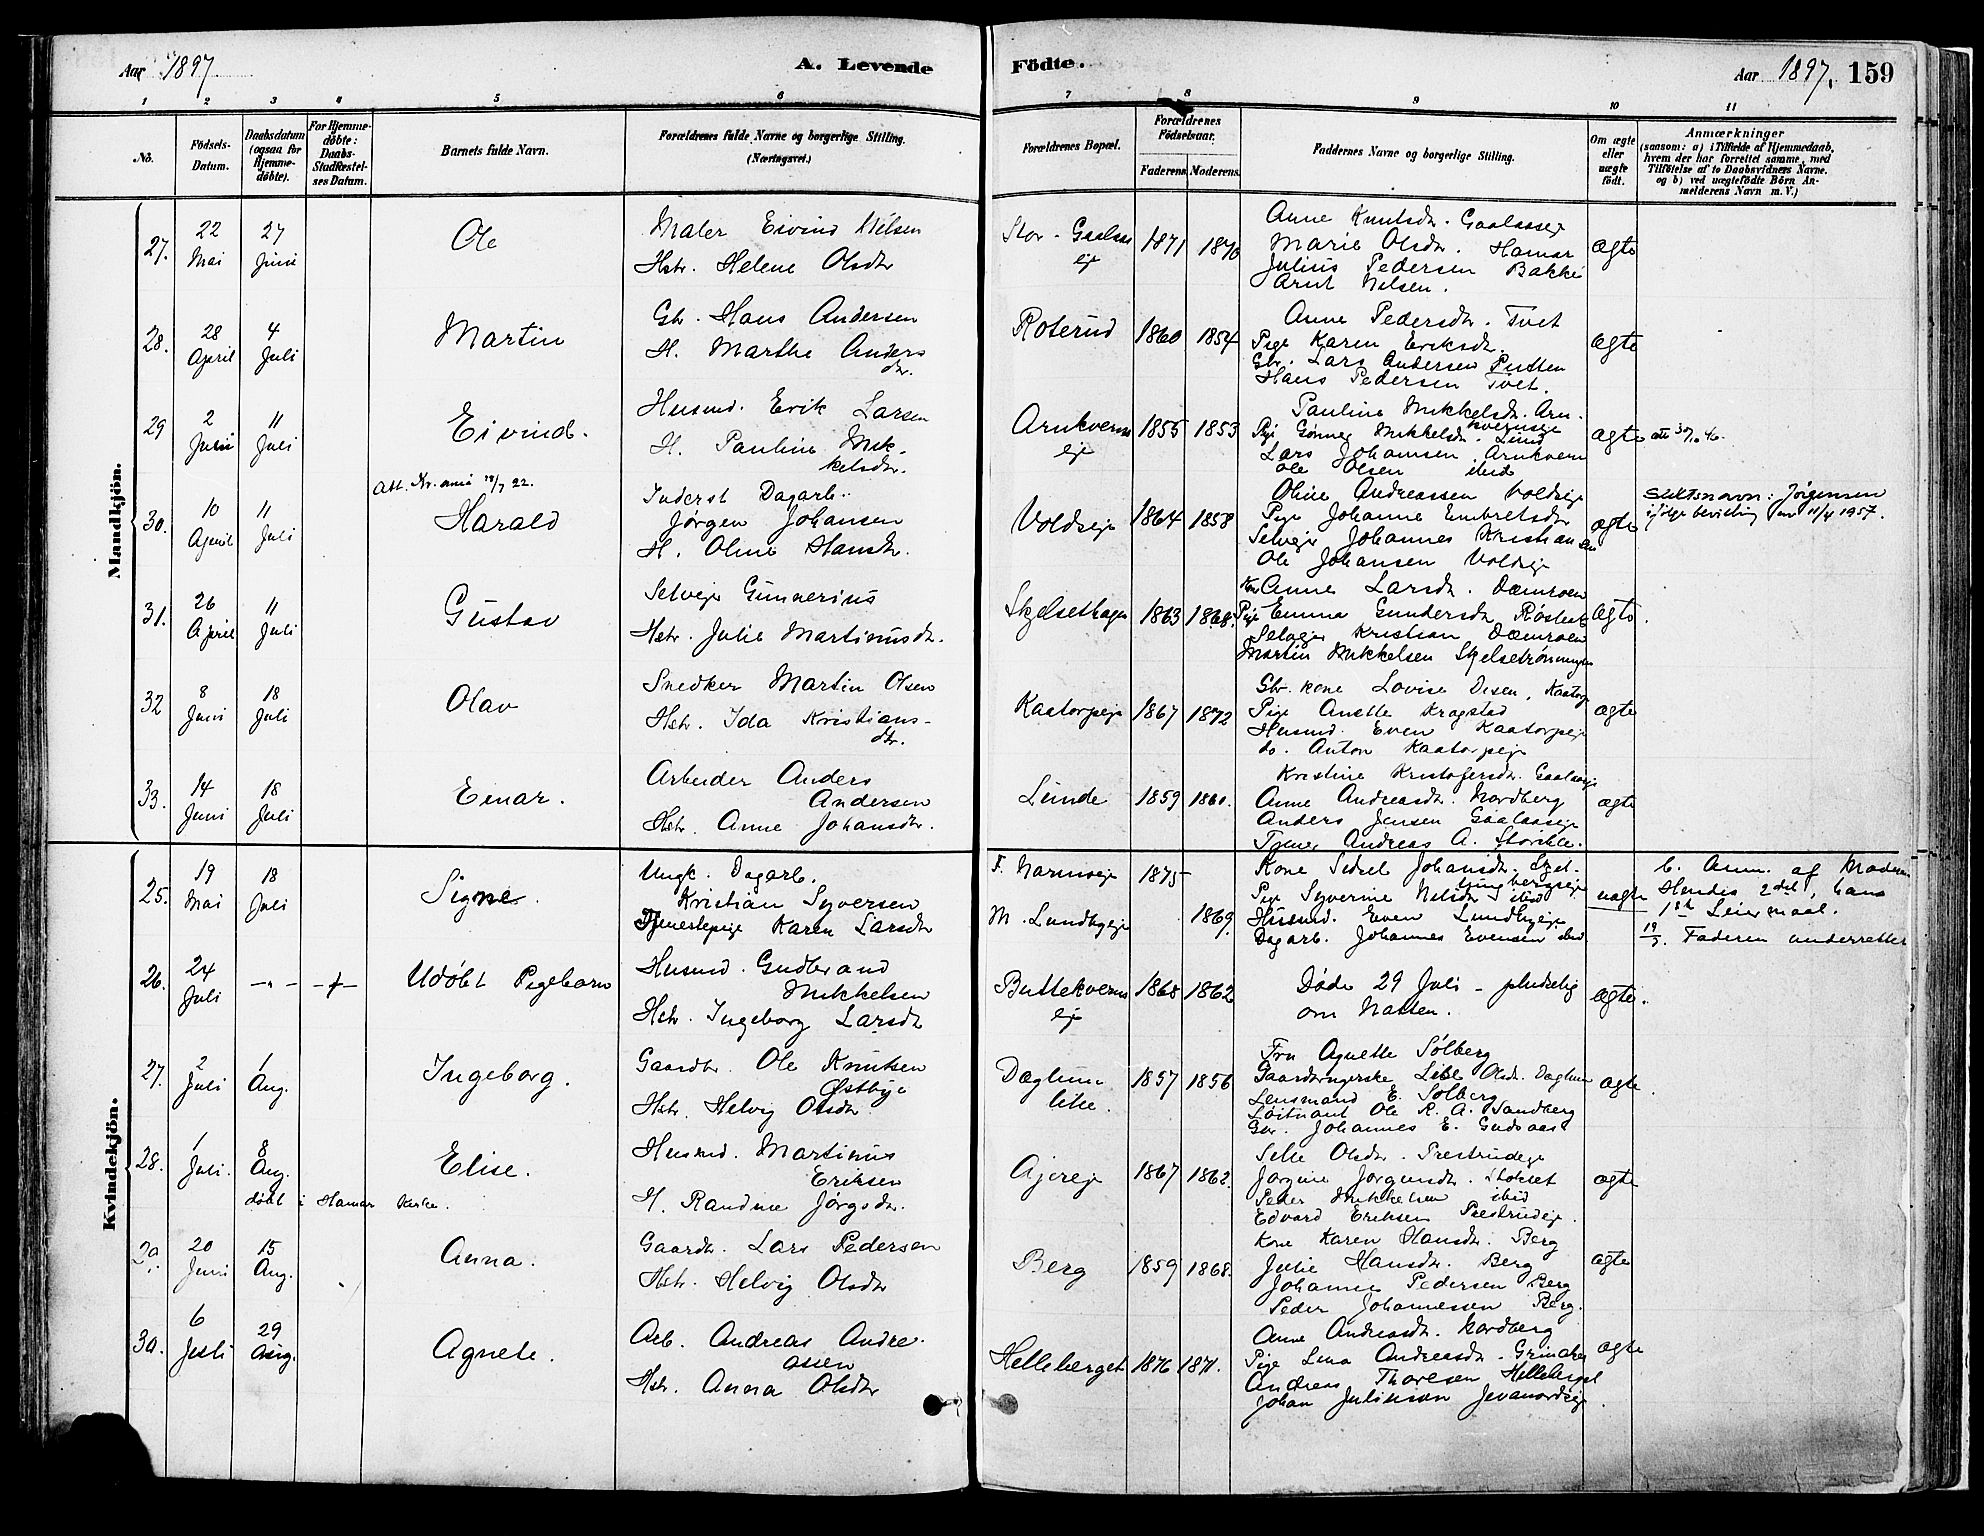 Aar 1897.
A. Levende
Födte.
Aar 1897.
159
1 2 3 4 5 6 7 8 9 10 11
No.
Födsels-Datum.
Daabsdatum (ogsaa for Hjemme-döbte).
For Hjemme-döbte: Daabs-Stadfæstel-ses Datum.
Barnets fulde Navn.
Forældrenes fulde Navne og borgerlige Stilling. (Næringsvei.)
Forældrenes Bopæl.
Forældrenes Födselsaar.
Faderens Moderens.
Faddernes Navne og borgerlige Stilling.
Om ægte eller uægte født.
Anmærkninger
(saasom: a) i Tilfælde af Hjemmedaab,
hvem der har forrettet samme, med
Tilföielse af to Daabsvidners Navne.
og b) ved uægtefödte Börn An-
melderens Navn m. V.)
Mandkjön.
27. 22 Mai 27 Juni
Ole
Maler Eivind Nilsen
Hstr. Helene Olsdtr
Stor-Gaalaas
eje
1871 1870
Anne Knutsdtr. Gaalaaseje
Marie Olsdtr. Hamar
Julius Pedersen Bakke
Arnt Nilsen.
ægte
28. 28 April 4 Juli
Martin
Gbr. Hans Andersen
H. Marthe Anders
dtr.
Roterud
1860 1854
Anne Pedersdtr. Tvet
Pige Karen Eriksdtr.
Gbr. Lars Andersen Putten
Hans Pedersen Tvet.
ægte
29 2 Juni 11 Juli
Eivind.
Husmd. Erik Larsen
H. Pauline Mik-
kelsdtr.
Arnkverns
eje
1855 1853
Pauline Mikkelsdtr. Arn-
kvernseje
Pige Gunner Mikkelsdtr. Lund
Lars Johansen Arnkvern
Ole Olsen ibid
ægte
30. 10 April 11 Juli
Harald
Inderst Dagarb.
Jørgen Johansen
H. Oline Hansdtr.
Voldseje
1864 1858
Oline Andreassen Voldseje
Pige Johanne Embretsdtr
Selvejer Johannes Kristiansen
Ole Johansen Voldseje
ægte
Slektsnavn: Jørgensen
ifølge bevilling av 11/4 1957.
31. 26 April 11 Juli
Gustav
Selvejer Gunnerius
Hstr. Julie Martinusdtr.
Skjelsethagen
1863 1868.
Kone Anne Larsdtr. Dæmroen
Pige Emma Gundersdtr
Selvejer Kristian Dæmroen
Martin Mikkelsen
ægte.
32 8 Juni 18 Juli
Olav
Snedker Martin Olsen
Hstr. Ida Kristians-
dtr.
Kaatorpeje
1867 1872
Gbr. kone Lovise Olsen, Kaatorp
Pige Anette Kragstad
Husmd. Even Kaatorpeje
do. Anton Kaatorpeje
ægte
33. 14 Juni 18 Juli
Einar.
Arbeider Anders
Andersen
Hstr. Anne Johansdtr.
Lunde
1859 1861.
Kristine Kristofersdtr. Gaalaaseje
Anne Andreasdtr. Nordberg
Anders Jensen Gaalaaseje
Tjener Andreas A.
ægte
Kvindekjön.
25. 19 Mai 18 Juli
Signe.
Ungk. Dagarb.
Kristian Syversen
Tjenestepige Karen Larsdtr
F.
M. Lundbyeje
1875
1869.
Kone Sidsel Johansdtr.
Pige Syverine Nilsdtr ibid
Husmd. Even Lundbyeje
Dagarb. Johannes Evensen ibid
uægte
b. Anm. af Moderen
Hendes 2det, hans
1ste Leiermaal.
19/7. Faderen underrettet
26. 24 Juli
Udöbt Pigebarn
Husmd. Gudbrand
Mikkelsen
Hstr. Ingeborg Larsdtr
Buttekverns
eje
1868 1862
Døde 29 Juli - pludselig
om Natten.
ægte.
27. 2 Juli 1 Aug.
Ingeborg.
Gaardbr. Ole Knutsen
Østbye
Hstr. Helvig Olsdtr
Daglun
lille.
1857 1856
Fru Agnette Solberg
Gaardbrugerske Lise Olsdtr. Daglun
Lensmand E. Solberg
Løitnant Ole R. A. Sandberg
Gbr. Johannes E. Gudsaas
ægte.
28. 1 Juli. 8 Aug.
døbt i Hamar Kirke.
Elise.
Husmd. Martinus
Eriksen
H. Randine Jørgsdtr.
Ajereje
1867 1862.
Sille Olsdtr. Prestrudeje
Jørgine Jørgensdtr.
Peder Mikkelsen ibid
Edvard Eriksen Prestrudeje.
ægte
29. 20 Juni 15 Aug.
Anna.
Gaardbr. Lars Pedersen
Hstr. Helvig Olsdtr
Berg
1859 1868.
Kone Karen Hansdtr. Berg
Julie Hansdtr. Berg
Johannes Pedersen Berg
Peder Johannessen Berg.
ægte
30. 6 Juli 29 Aug.
Agnete.
Arb. Andreas Andre-
assen
Hstr. Anna Olsdtr
Helleberget
1876 1871.
Anne Andreasdtr. Nordberg
Pige Lina Andreasdtr. Grinaker
Andreas Thoresen Helleberget
Johan Julinsson
ægte